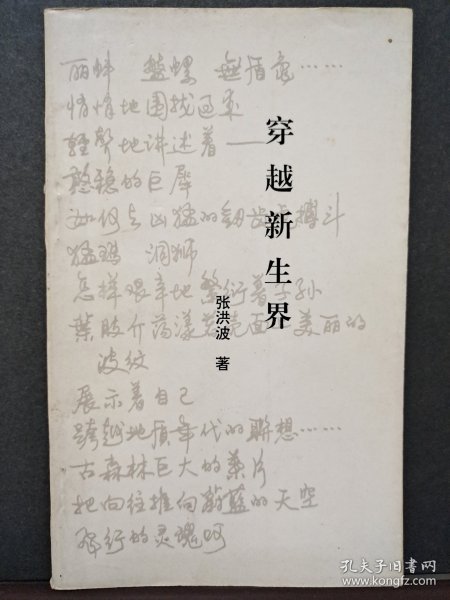 穿越新生界
张洪波 著
丽蚌 盤螺 無盾龟……
悄悄地围拢过来
轻声地讲述着——
憨稳的巨犀
如何与凶猛的剑齿虎搏斗
猛玛 洞狮
怎样艰辛地繁衍着子孙
葉肢介荡漾着范面美丽的
波纹
展示着自己
跨越地质年代的联想……
古森林巨大的葉片
把向往推向蔚蓝的天空
飛行的灵魂呵
孔夫子旧书网
www.kongfz.com